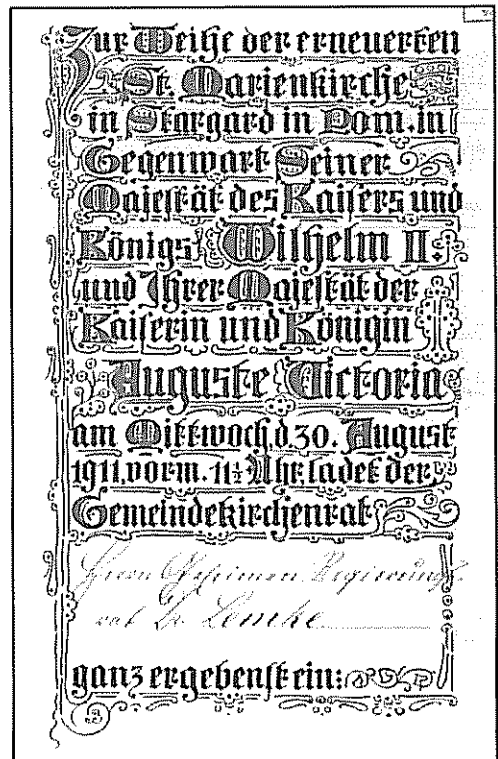 Zur Weihe der erneuerten
St. Marienkirche
in Stargard in Pom. in
Gegenwart Seiner
Majestät des Kaisers und
Königs Wilhelm II.
und Ihrer Majestät der
Kaiserin und Königin
Auguste Victoria
am Mittwoch, d. 30. August
1911, vorm. 11½ Uhr ladet der
Gemeindekirchenrat
Herrn Geheimen Regierungs-
rat Dr. Lemke
ganz ergebenst ein: